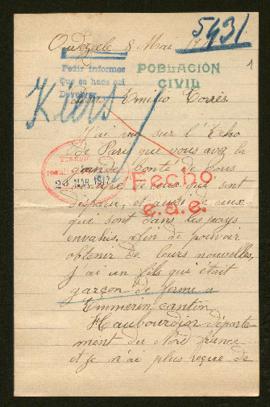 5431
8 Mai
Pedir informes
Que se hace aqui
Devolver
POBLACIÓN
CIVIL
Emilio Torrès
J'ai vu sur l'Echo
de Paris que vous avez la
grande bonté de vous
qui sont
disparu, et aussi de ceux
qui sont dans les pays
envahis, afin de pouvoir
obtenir de leurs nouvelles,
j'ai un fils qui était
garçon de ferme a
Emmerin canton
Haubourdin départe-
ment du Nord france
et je n'ai plus reçue de
Fecho
e.a.e.